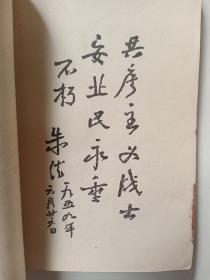 共产主义战士
安业民永垂
不朽
朱德
一九五九年
六月廿